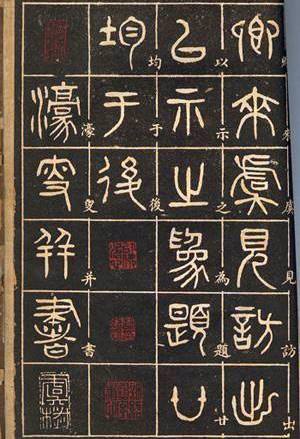 卿來虞見訪出
以示之為題廿
均于後
濠叟并書